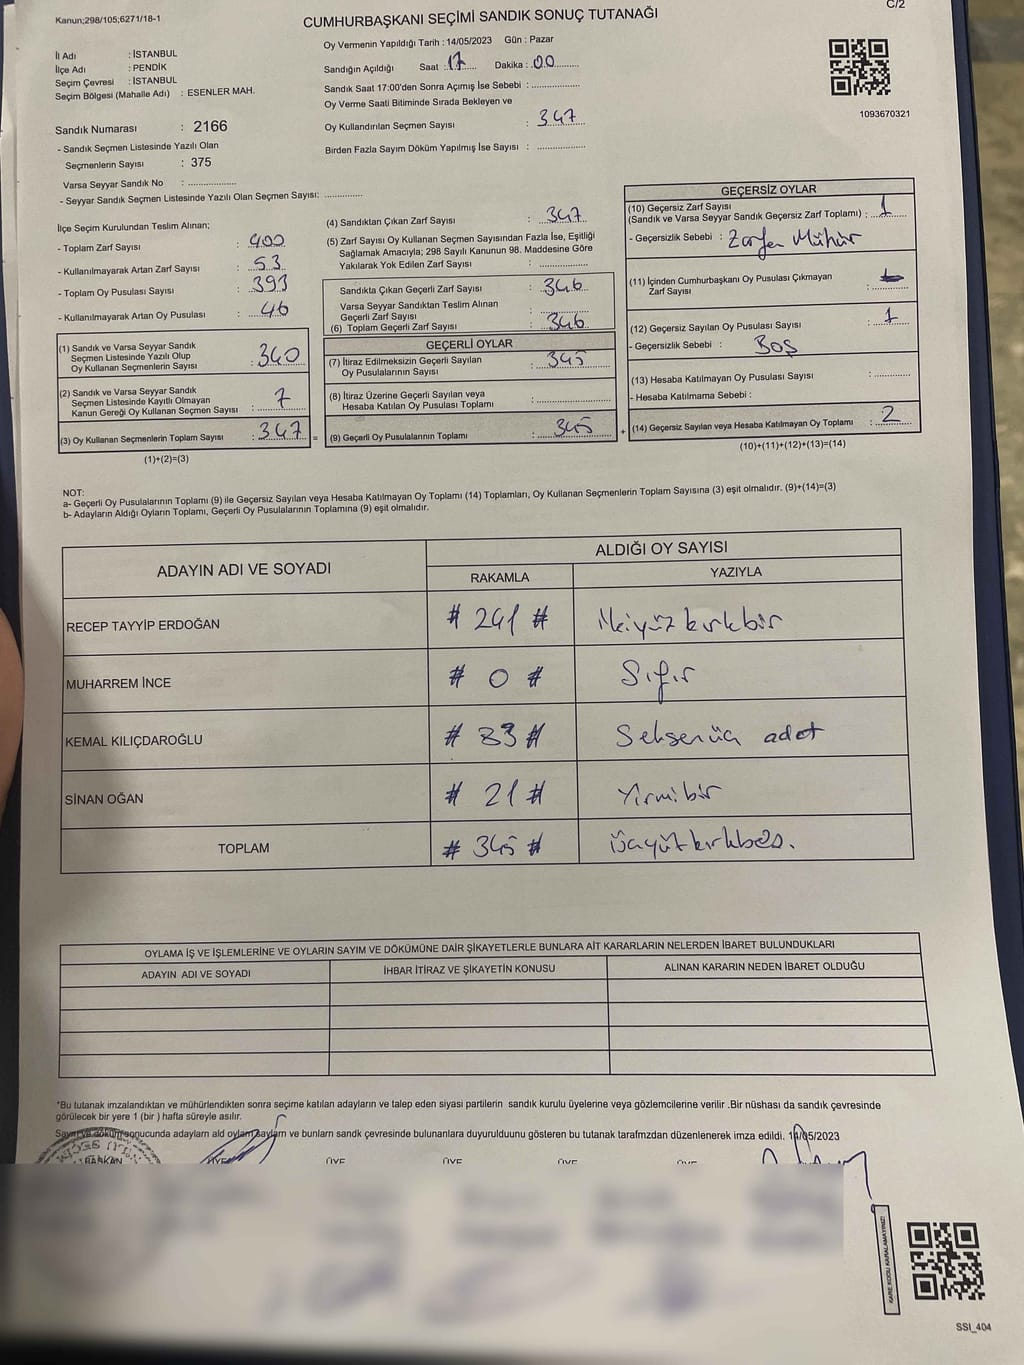 Kanun;298/105;6271/18-1
C/2
CUMHURBAŞKANI SEÇİMİ SANDIK SONUÇ TUTANAĞI
İl Adı : İSTANBUL
İlçe Adı : PENDİK
Seçim Çevresi : İSTANBUL
Seçim Bölgesi (Mahalle Adı) : ESENLER MAH.
Sandık Numarası : 2166
- Sandık Seçmen Listesinde Yazılı Olan
Seçmenlerin Sayısı : 375
Varsa Seyyar Sandık No : ................
- Seyyar Sandık Seçmen Listesinde Yazılı Olan Seçmen Sayısı: .............
Oy Vermenin Yapıldığı Tarih : 14/05/2023 Gün : Pazar
Sandığın Açıldığı Saat : 17 Dakika : 00
Sandık Saat 17:00'den Sonra Açımış İse Sebebi : ................
Oy Verme Saati Bitiminde Sırada Bekleyen ve
Oy Kullandırılan Seçmen Sayısı : 347
Birden Fazla Sayım Döküm Yapılmış İse Sayısı : ................
1093670321
İlçe Seçim Kurulundan Teslim Alınan;
- Toplam Zarf Sayısı : 400
- Kullanılmayarak Artan Zarf Sayısı : 53
- Toplam Oy Pusulası Sayısı : 393
- Kullanılmayarak Artan Oy Pusulası : 46
(1) Sandık ve Varsa Seyyar Sandık
Seçmen Listesinde Yazılı Olup
Oy Kullanan Seçmenlerin Sayısı : 340
(2) Sandık ve Varsa Seyyar Sandık
Seçmen Listesinde Kayıtlı Olmayan
Kanun Gereği Oy Kullanan Seçmen Sayısı : 7
(3) Oy Kullanan Seçmenlerin Toplam Sayısı : 347 =
(1)+(2)=(3)
(4) Sandıktan Çıkan Zarf Sayısı : 347
(5) Zarf Sayısı Oy Kullanan Seçmen Sayısından Fazla İse, Eşitliği
Sağlamak Amacıyla; 298 Sayılı Kanunun 98. Maddesine Göre
Yakılarak Yok Edilen Zarf Sayısı : ................
Sandıkta Çıkan Geçerli Zarf Sayısı : 346
Varsa Seyyar Sandıktan Teslim Alınan
Geçerli Zarf Sayısı : ................
(6) Toplam Geçerli Zarf Sayısı : 346
GEÇERLİ OYLAR
(7) İtiraz Edilmeksizin Geçerli Sayılan
Oy Pusulalarının Sayısı : 345
(8) İtiraz Üzerine Geçerli Sayılan veya
Hesaba Katılan Oy Pusulası Toplamı : ................
(9) Geçerli Oy Pusulalarının Toplamı : 345 +
GEÇERSİZ OYLAR
(10) Geçersiz Zarf Sayısı
(Sandık ve Varsa Seyyar Sandık Geçersiz Zarf Toplamı) : 1
- Geçersizlik Sebebi : Zarfen Mühür
(11) İçinden Cumhurbaşkanı Oy Pusulası Çıkmayan
Zarf Sayısı :
(12) Geçersiz Sayılan Oy Pusulası Sayısı : 1
- Geçersizlik Sebebi : BOŞ
(13) Hesaba Katılmayan Oy Pusulası Sayısı : ............
- Hesaba Katılmama Sebebi :
(14) Geçersiz Sayılan veya Hesaba Katılmayan Oy Toplamı : 2
(10)+(11)+(12)+(13)=(14)
NOT:
a- Geçerli Oy Pusulalarının Toplamı (9) ile Geçersiz Sayılan veya Hesaba Katılmayan Oy Toplamı (14) Toplamları, Oy Kullanan Seçmenlerin Toplam Sayısına (3) eşit olmalıdır. (9)+(14)=(3)
b- Adayların Aldığı Oyların Toplamı, Geçerli Oy Pusulalarının Toplamına (9) eşit olmalıdır.
ADAYIN ADI VE SOYADI
ALDIĞI OY SAYISI
RAKAMLA YAZIYLA
RECEP TAYYİP ERDOĞAN # 241 # ikiyüzkırkbir
MUHARREM İNCE # 0 # Sıfır
KEMAL KILIÇDAROĞLU # 83 # Seksenüç adet
SİNAN OĞAN # 21 # Yirmibir
TOPLAM # 345 # üçyüzkırkbeş.
OYLAMA İŞ VE İŞLEMLERİNE VE OYLARIN SAYIM VE DÖKÜMÜNE DAİR ŞİKAYETLERLE BUNLARA AİT KARARLARIN NELERDEN İBARET BULUNDUKLARI
ADAYIN ADI VE SOYADI İHBAR İTİRAZ VE ŞİKAYETİN KONUSU ALINAN KARARIN NEDEN İBARET OLDUĞU
*Bu tutanak imzalandıktan ve mühürlendikten sonra seçime katılan adayların ve talep eden siyasi partilerin sandık kurulu üyelerine veya gözlemcilerine verilir .Bir nüshası da sandık çevresinde
görülecek bir yere 1 (bir ) hafta süreyle asılır.
Sayım ve döküm sonucunda adayların ald oyların sayları ve bunların sandk çevresinde bulunanlara duyurulduunu gösteren bu tutanak tarafmzdan düzenlenerek imza edildi. 14/05/2023
BAŞKAN ÜYE ÜYE ÜYE ÜYE ÜYE
KARE KODU KARALAMAYINIZ!
SSI_404